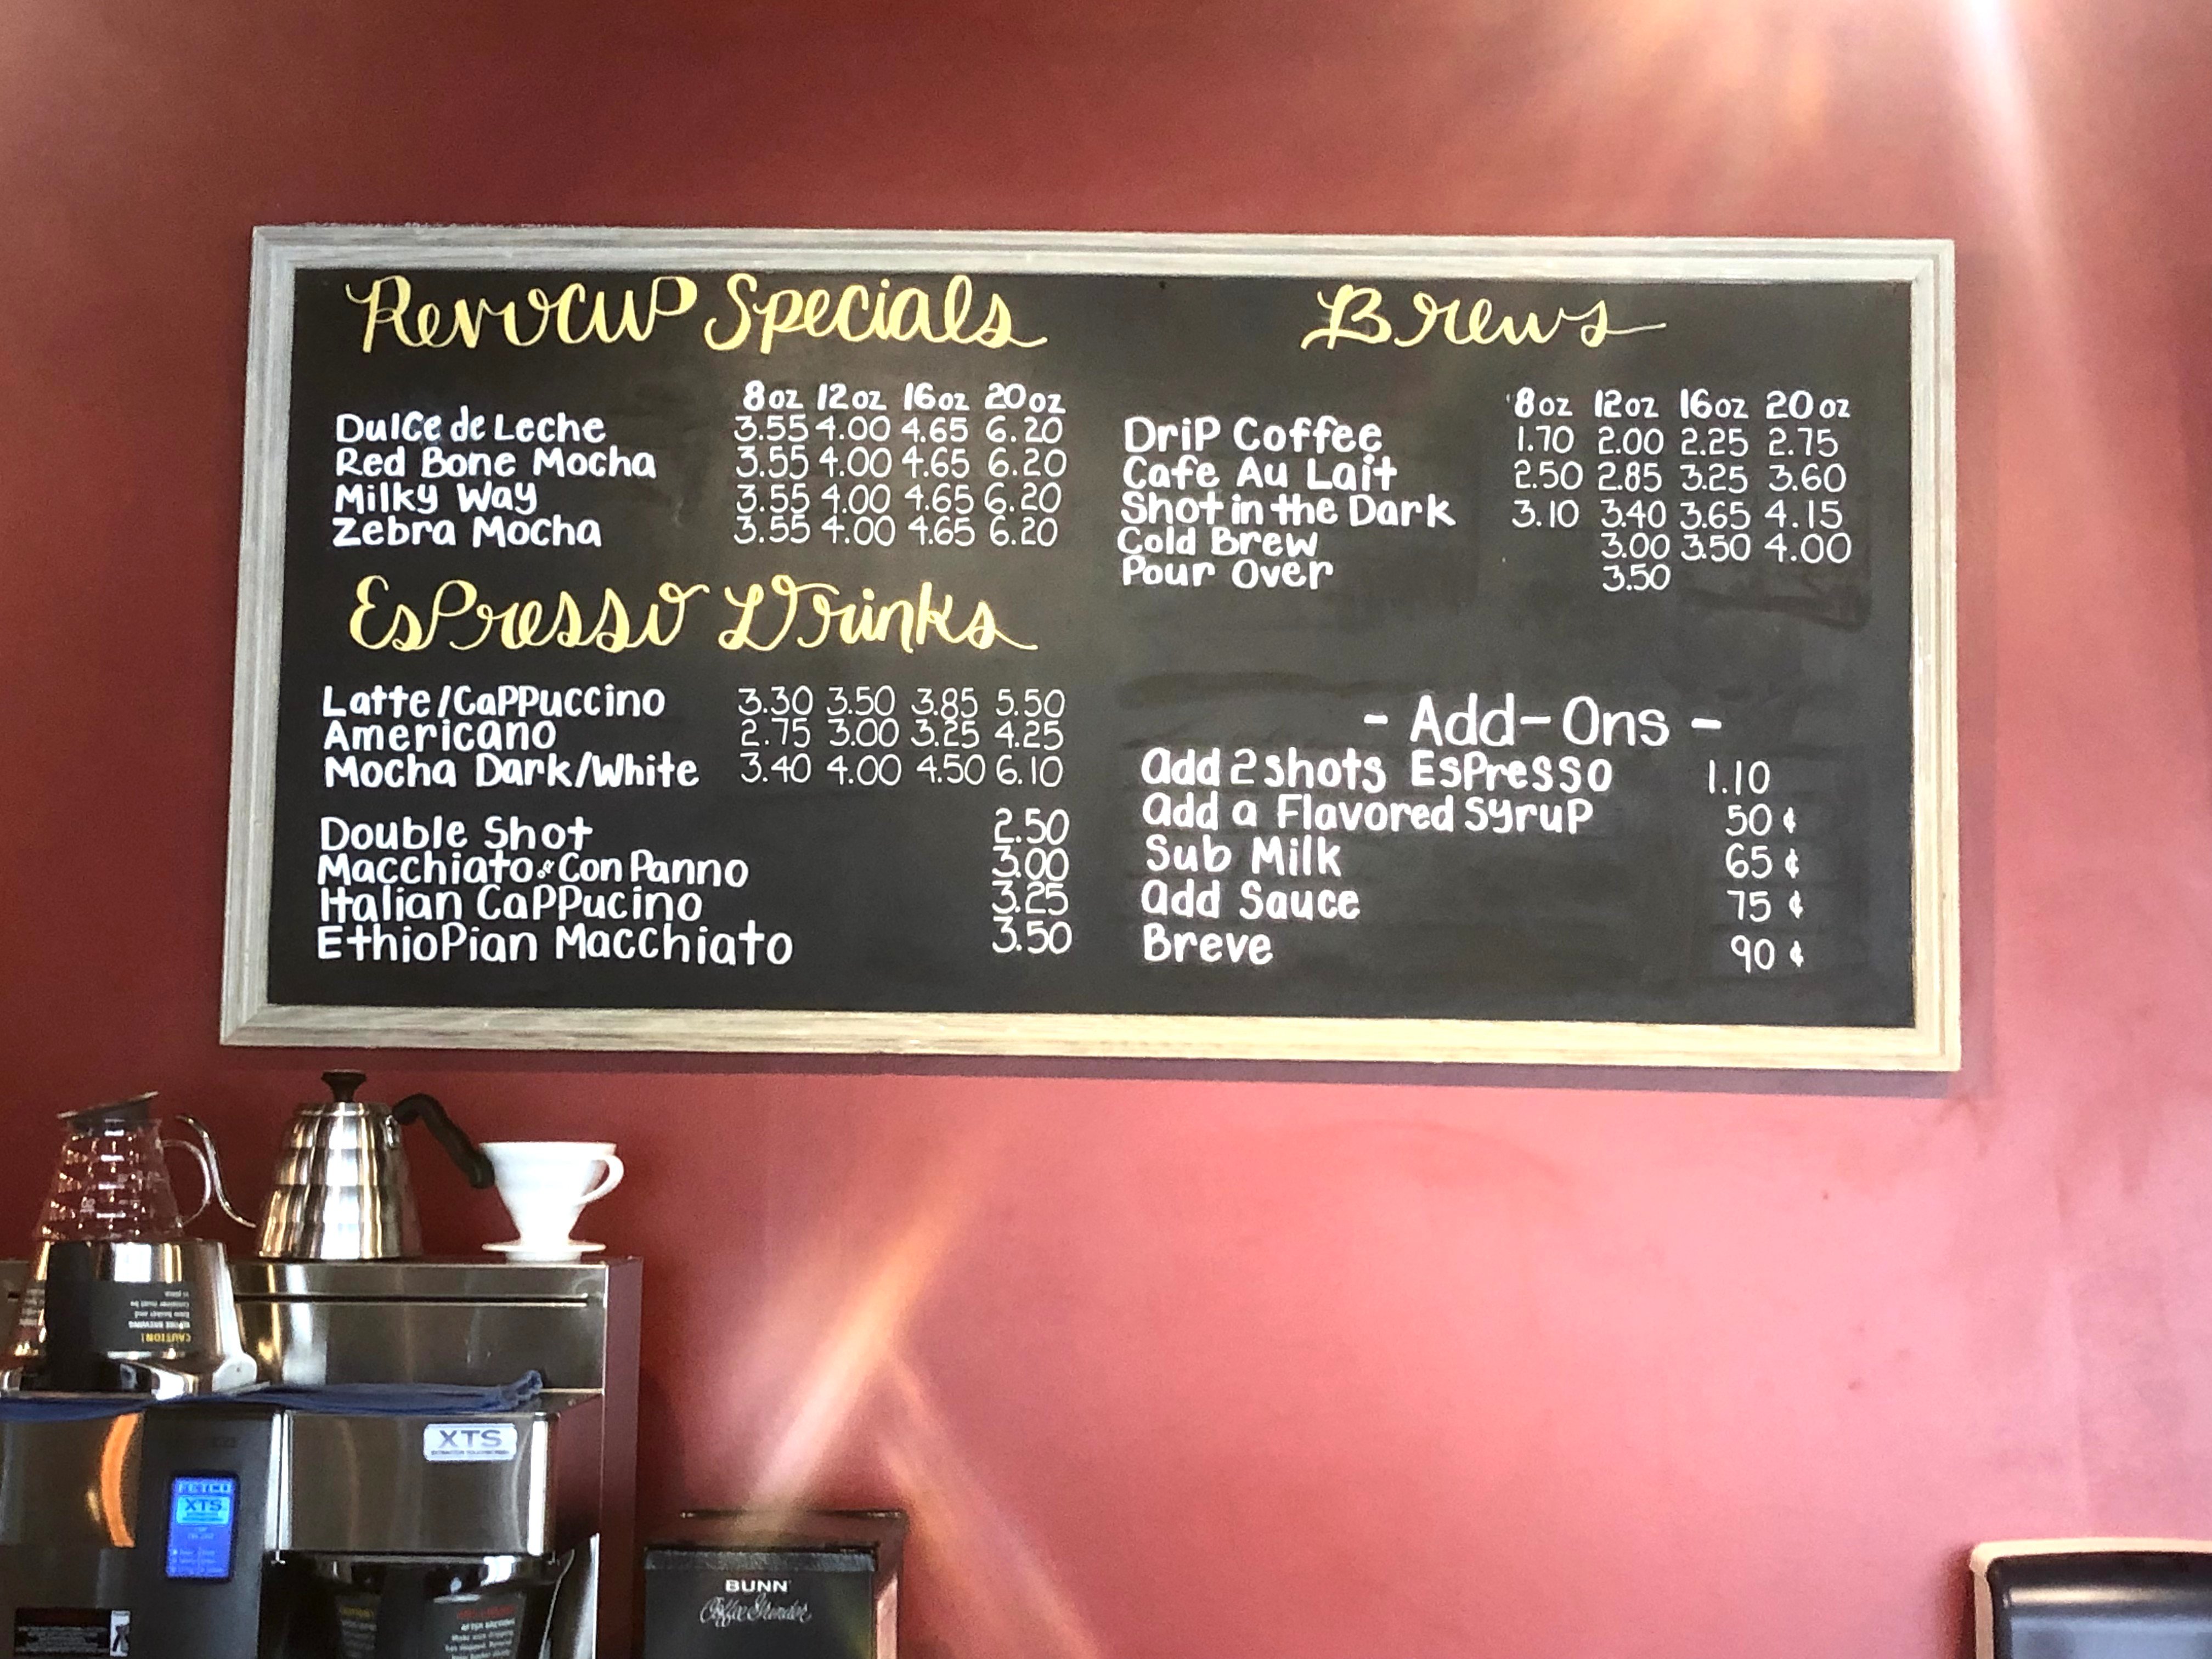 Revocup Specials
8oz 12oz 16oz 20oz
Dulce de Leche 3.55 4.00 4.65 6.20
Red Bone Mocha 3.55 4.00 4.65 6.20
Milky Way 3.55 4.00 4.65 6.20
Zebra Mocha 3.55 4.00 4.65 6.20
Espresso Drinks
Latte/Cappuccino 3.30 3.50 3.85 5.50
Americano 2.75 3.00 3.25 4.25
Mocha Dark/White 3.40 4.00 4.50 6.10
Double Shot 2.50
Macchiato & Con Panno 3.00
Italian Cappucino 3.25
Ethiopian Macchiato 3.50
Brews
8oz 12oz 16oz 20oz
Drip Coffee 1.70 2.00 2.25 2.75
Cafe Au Lait 2.50 2.85 3.25 3.60
Shot in the Dark 3.10 3.40 3.65 4.15
Cold Brew 3.00 3.50 4.00
Pour Over 3.50
- Add-Ons -
add 2 shots Espresso 1.10
add a Flavored Syrup 50 ¢
Sub Milk 65 ¢
add Sauce 75 ¢
Breve 90 ¢
CAUTION!
XTS
FETCO
XTS
BUNN
Coffee Grinder